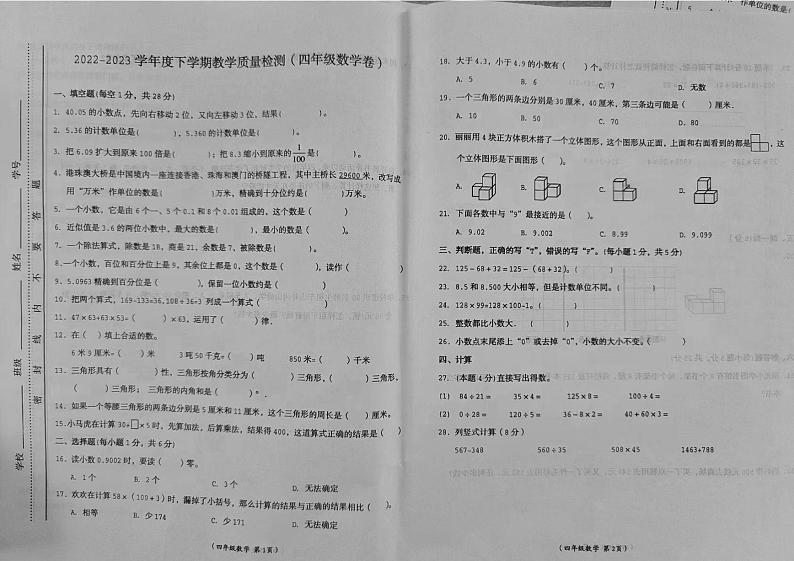 2022-2023 学年度下学期教学质量检测（四年级数学卷）
一、填空题(每空 1 分，共 28 分)
1. 40.05 的小数点，先向右移动 2 位，又向左移动 3 位，结果(　　)。
2. 5.36 的计数单位是(　　)，5.360 的计数单位是(　　)。
3. 把 6.09 扩大到原来 100 倍是(　　)；把 8.3 缩小到原来的 1/100 是(　　)。
4. 港珠澳大桥是中国境内一座连接香港、珠海和澳门的桥隧工程，其中主桥长 29600 米，改写成
用“万米”作单位的数是(　　)万米，精确到十分位约是(　　)万米。
5. 一个小数，它是由 6 个一、5 个 0.1 和 8 个 0.01 组成的，这个数是(　　)
6. 近似值是 3.6 的两位小数中，最大的数是(　　)，最小的数是(　　)。
7. 一个除法算式，除数是 18，商是 21，余数是 7，被除数是(　　)。
8.一个小数，百位和百分位上是 9，其余位上都是 0，这个数是(　　)，读作(　　)
9. 5.0963 精确到百分位是(　　)，保留一位小数约是(　　)
10. 把两个算式，169-133=36,108÷36=3 列成一个算式(　　)
11. 47×63+63×53=(　　)×63，运用了(　　)律.
12. 在(　　)填上合适的数。
6 米 3 厘米=(　　)米　　3 吨 50 千克=(　　)吨　　850 米=(　　)千米
13. 三角形具有(　　)性，三角形按角分类分为(　　)三角形，(　　)三角形，
(　　)三角形；三角形的内角和是(　　)°.
14. 如果一个等腰三角形的两条边分别是 5 厘米和 11 厘米，这个三角形的周长是(　　)厘米。
15.小马虎在计算 30+□×5 时，先算加法，后算乘法，结果得 400，这道算式正确的结果是(　　)
二、选择题(每小题 1 分，共 6 分)
16. 读小数 0.9002 时，要读(　　)零。
A. 1 个　　B. 2 个　　C. 3 个　　D. 无法确定
17. 欢欢在计算 58×(100+3)时，漏掉了小括号，那么计算的结果与正确的结果相比(　　)。
A. 相等　　B. 少 174　　C. 少 171　　D. 无法确定
(四年级数学 第 1 页)
学校
班级
姓名
学号
密 封 线 内 不 要 答 题
18. 大于 4.3，小于 4.9 的小数有(　　)个。
A. 5　　B. 6　　C. 7　　D. 无数
19. 一个三角形的两条边分别是 30 厘米，40 厘米，第三条边可能是(　　)厘米.
A. 10　　B. 50　　C. 70　　D. 80
20. 丽丽用 4 块正方体积木搭了一个立体图形，这个图形从正面，上面和右面看到的都是　　，这
个立体图形是下面图形(　　)。
A.　　B.　　C.　　D.
21. 下面各数中与“9”最接近的是(　　)。
A. 9.02　　B. 9.002　　C. 8.99　　D. 9.099
22. 125-68+32=125-(68+32)。(　　)
23. 8.5 和 8.500 大小相等，但是计数单位不同。(　　)
24. 128×99=128×100-1。(　　)
25. 整数都比小数大.　(　　)
26. 小数点末尾添上“0”或去掉“0”，小数的大小不变。(　　)
四、计算
27. (本题 4 分)直接写出得数。
(1) 84÷21=　　35×4=　　125×8=　　100÷4=
(2) 0÷28=　　120÷5=　　36-8×2=　　40+60×3=
28. 列竖式计算(8 分)
567-348　　560÷35　　508×45　　1463+788
(四年级数学 第 2 页)